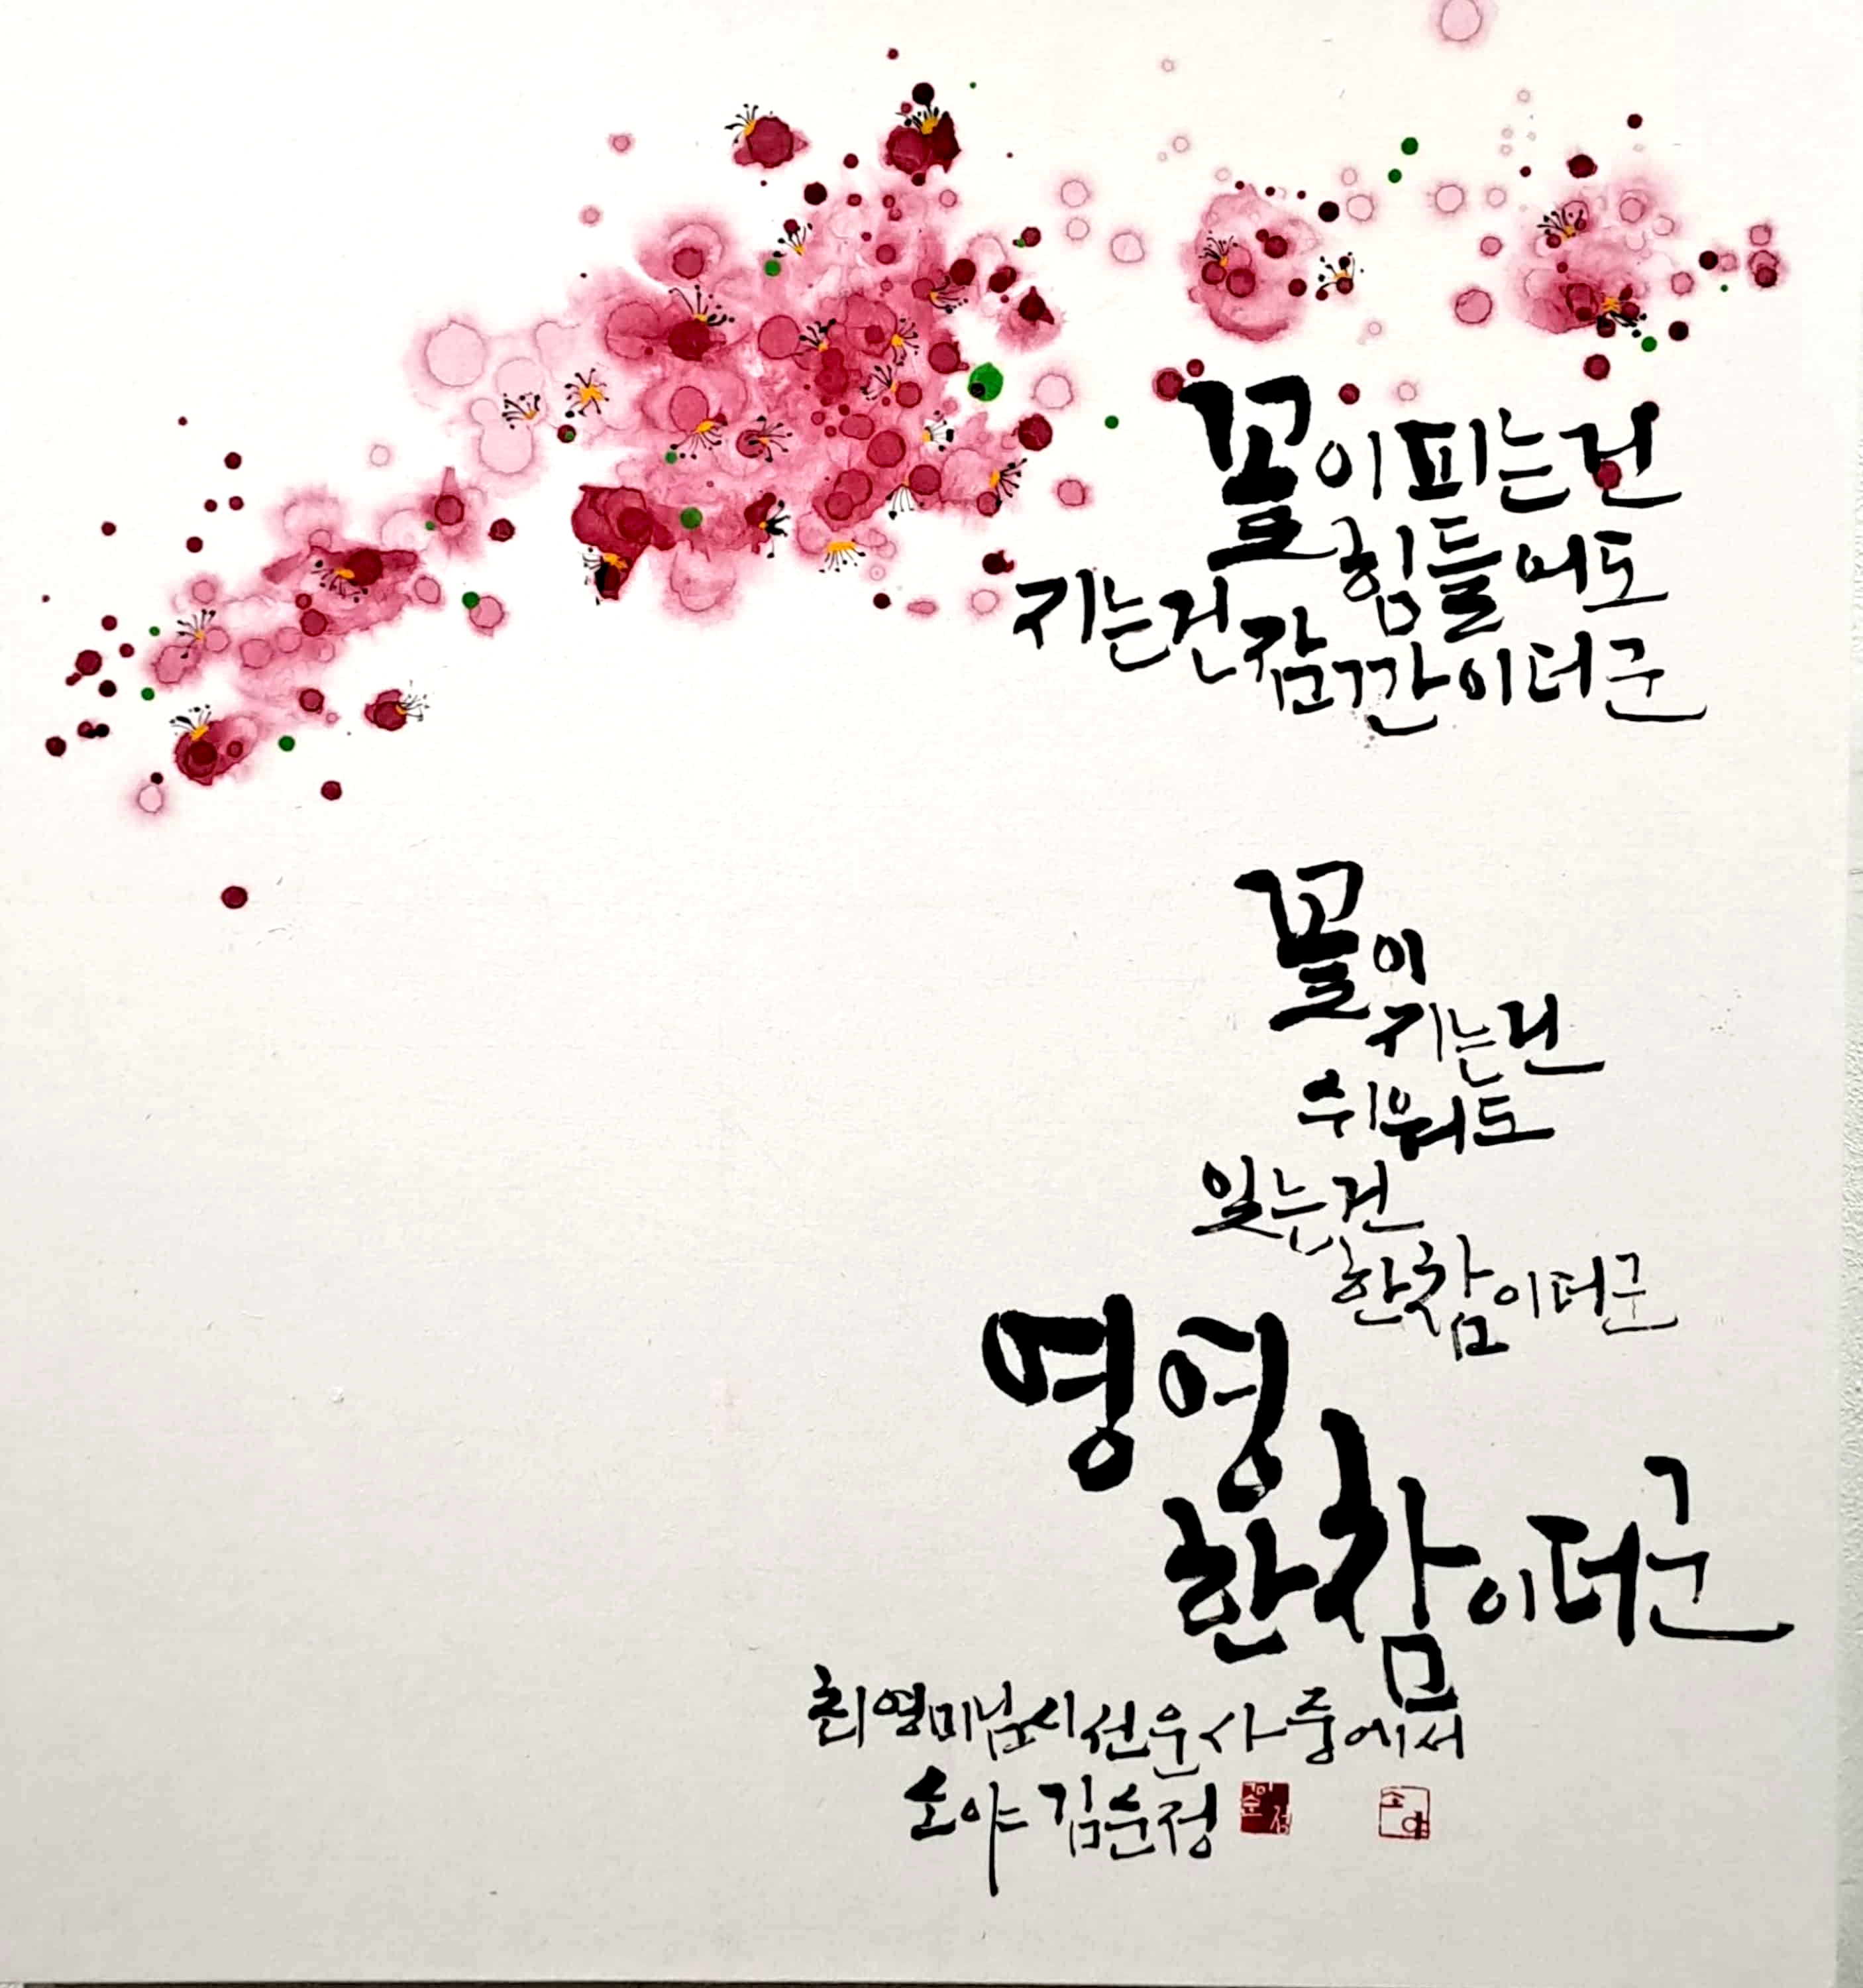 꽃이 피는건
힘들어도
지는건 잠깐이더군
꽃이
지는건
쉬워도
잊는건
한참이더군
영영
한참이더군
최영미님 시 선운사 중에서
소야 김순정
김순정
소야